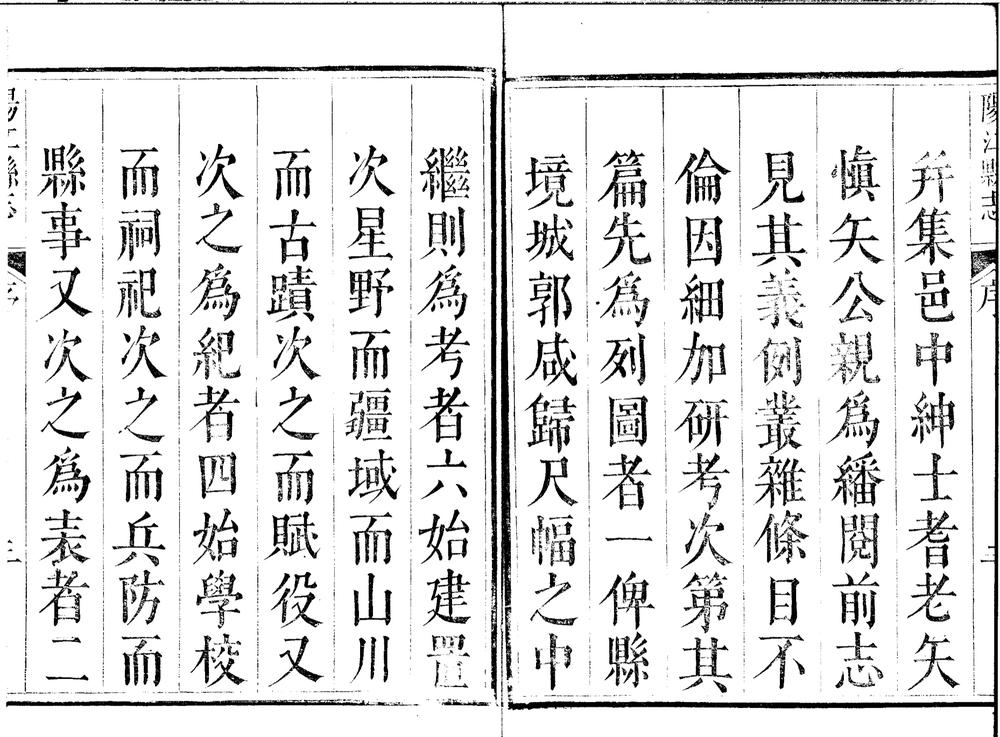 陽江縣志
序
二
并集邑中紳士耆老矢
愼矢公親爲繙閱前志
見其義例叢雜條目不
倫因細加硏考次第其
篇先爲列圖者一俾縣
境城郭咸歸尺幅之中
繼則爲考者六始建置
次星野而疆域而山川
而古蹟次之而賦役又
次之爲紀者四始學校
而祠祀次之而兵防而
縣事又次之爲表者二
陽江縣志
序
三